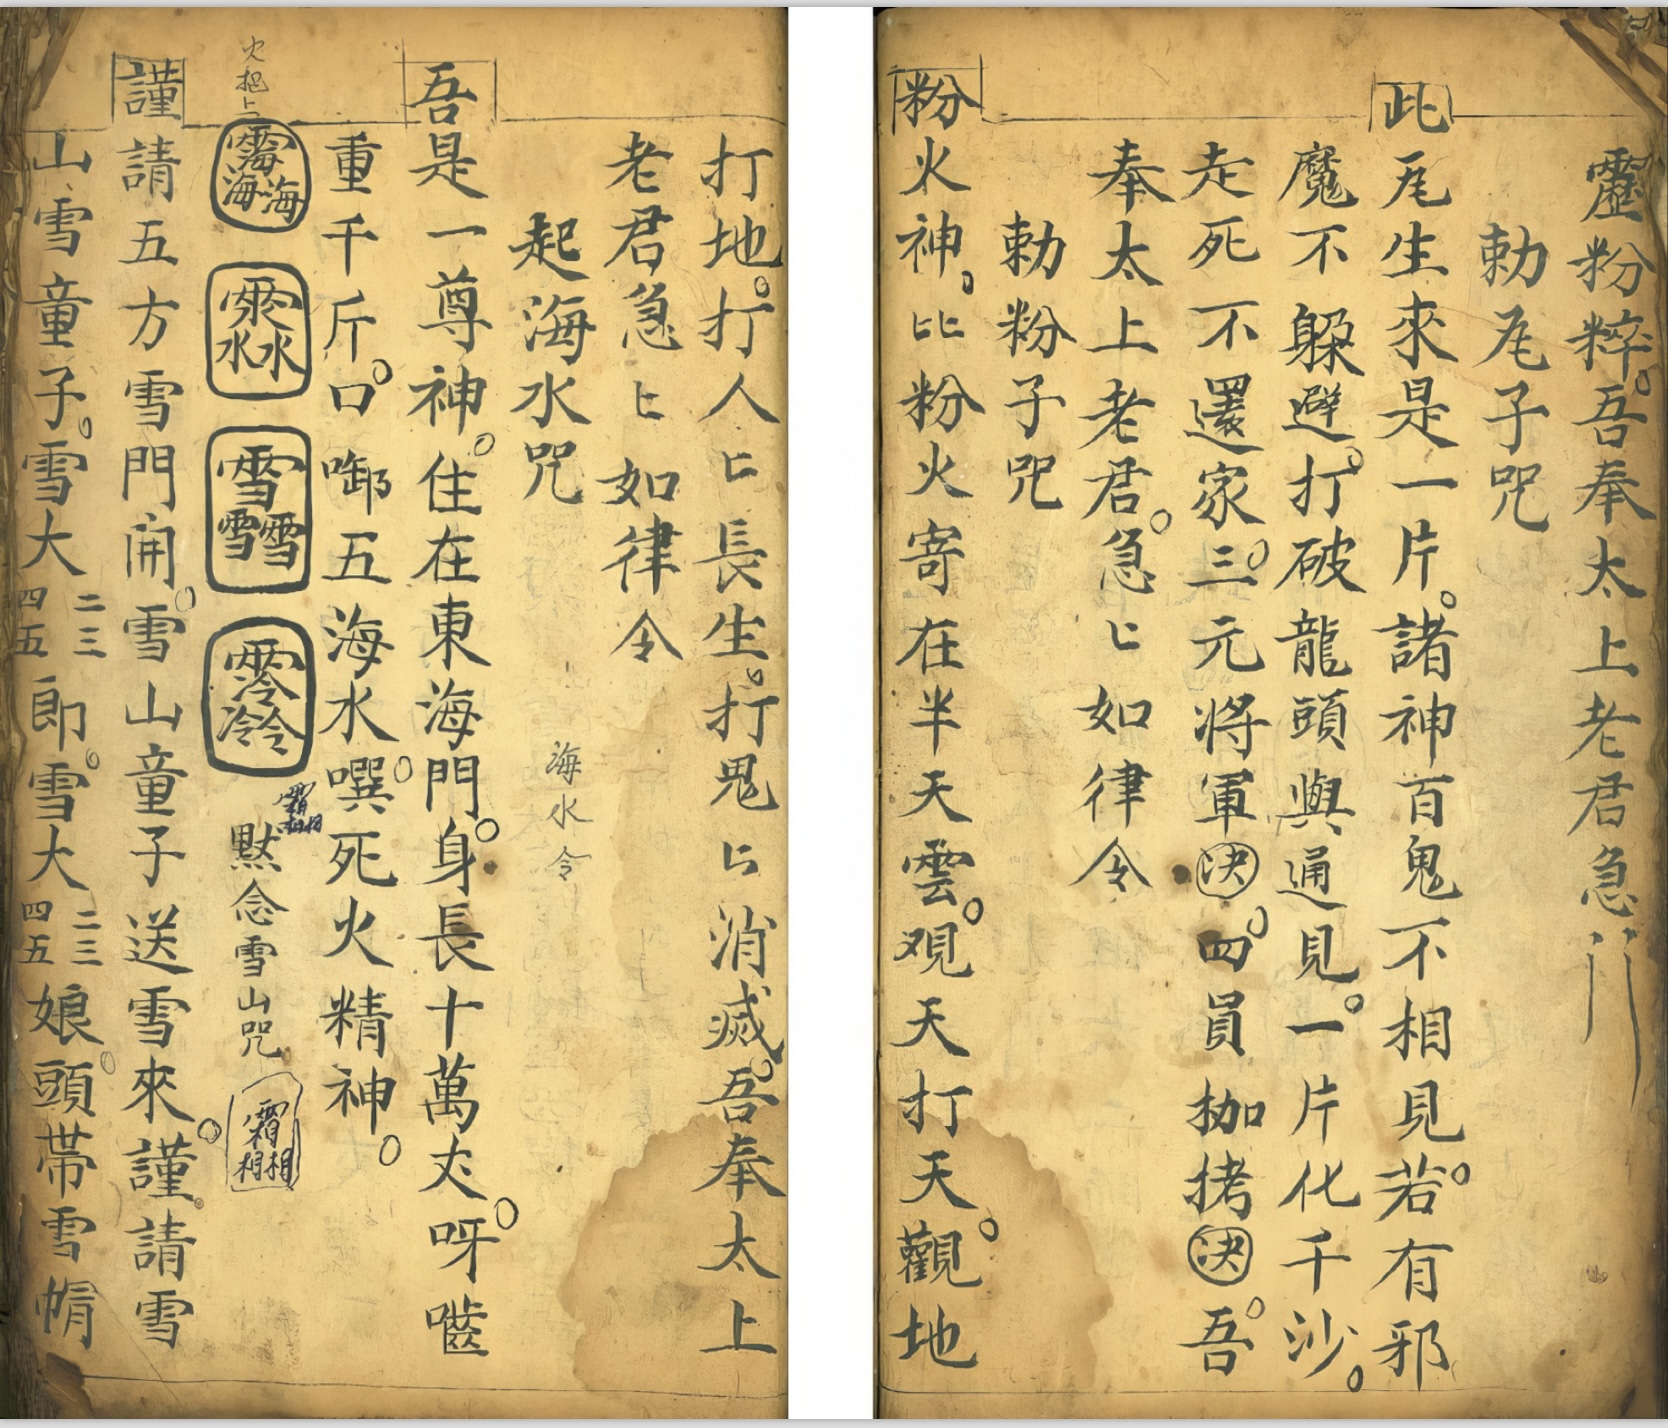 靈粉粹吾奉太上老君急
勅瓦子咒
此瓦生來是一片諸神百鬼不相見若有邪
魔不躲避打破龍頭與通見一片化千沙
走死不還家三元將軍決四員枷拷決吾
奉太上老君急匕如律令
勅粉子咒
粉火神比粉火寄在半天雲观天打天觀地
打地打人匕長生打鬼匕消滅吾奉太上
老君急匕如律令
起海水咒
海水令
吾是一尊神住在東海門身長十萬丈呀嚙
重千斤口啣五海水噀死火精神
火把上
海海
水水
雪雪雪
冷冷
霜相相
默念雪山咒
霜相相
謹請五方雪門開雪山童子送雪來謹請雪
山雪童子雪大二三四五郎雪大二三四五娘頭带雪帽